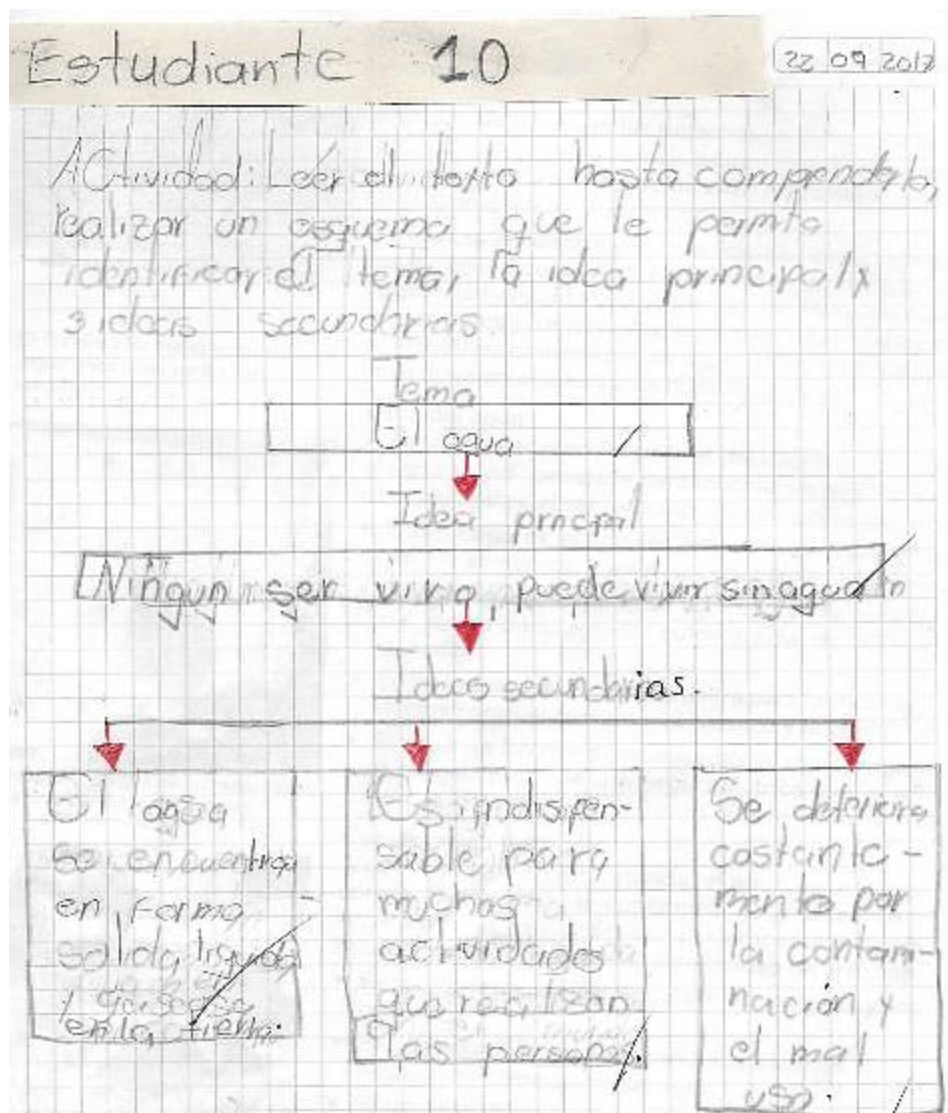 Estudiante 10
22 09 2017
Actividad: Leer el texto hasta comprenderlo,
realizar un esquema que le permita
identificar el tema, la idea principal y
3 ideas secundarias.
Tema
El agua
Idea principal
Ningún ser vivo, puede vivir sin agua
Ideas secundarias.
El agua
se encuentra
en forma
solida, liquida
y gaseosa
en la tierra.
Es indispen-
sable para
muchas
actividades
que realizan
las personas.
Se deteriora
costante-
mente por
la contami-
nación y
el mal
uso.